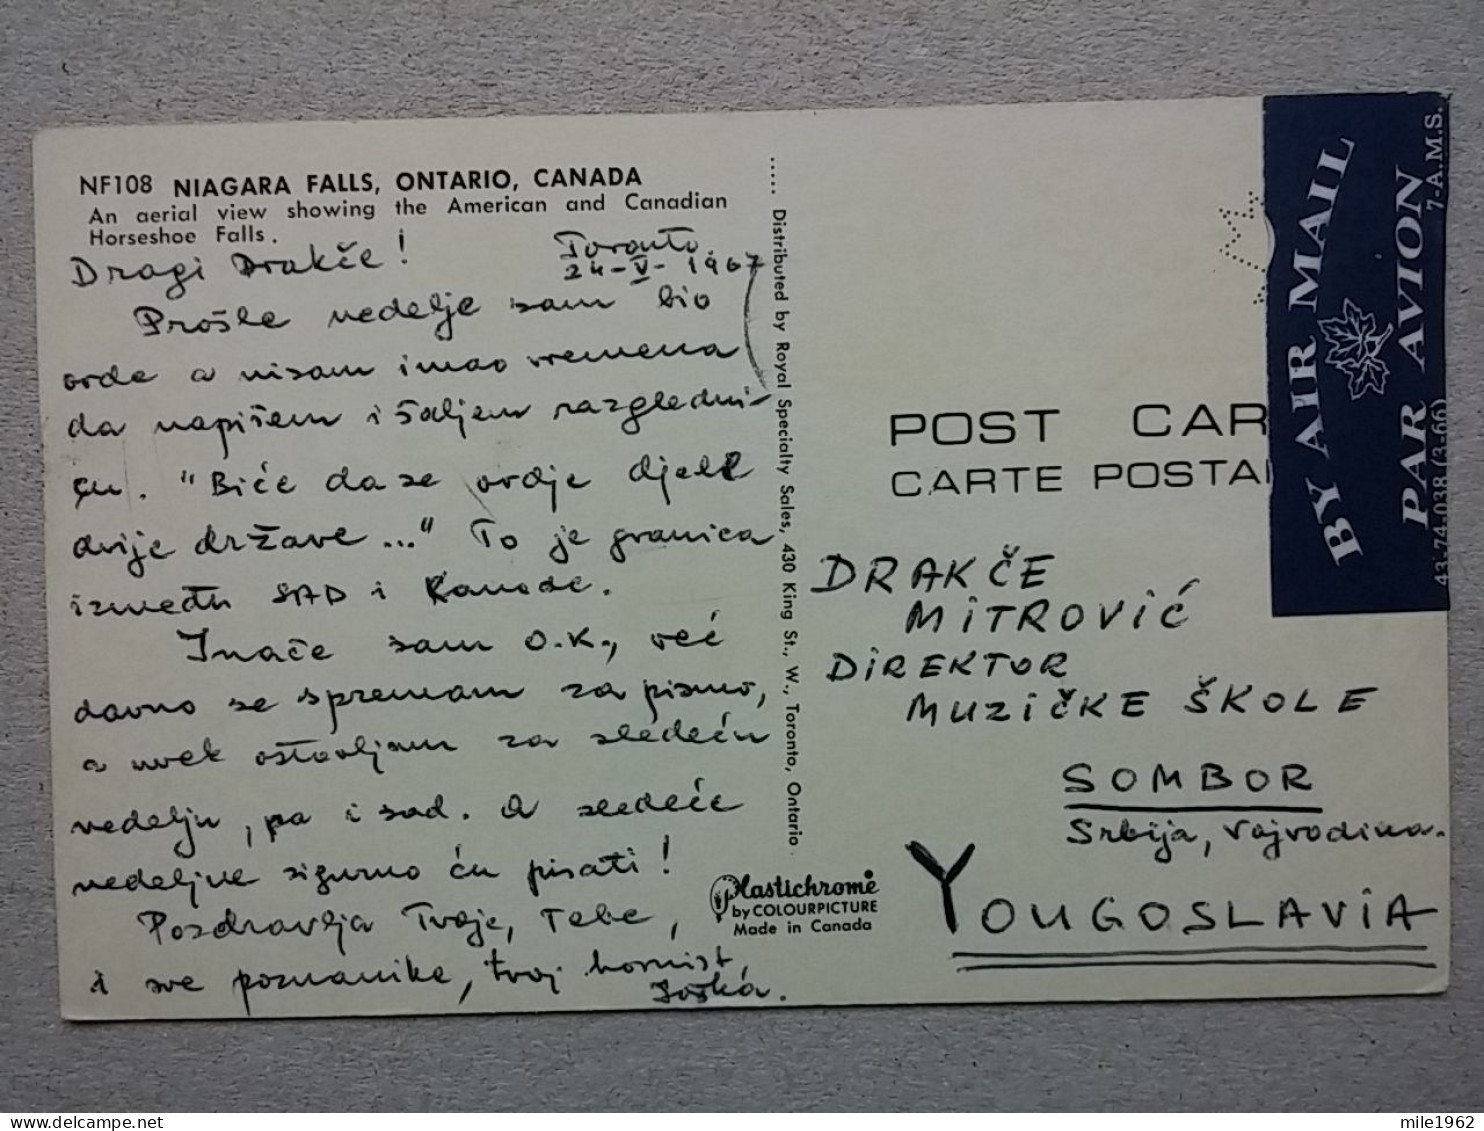 NF108 NIAGARA FALLS, ONTARIO, CANADA
An aerial view showing the American and Canadian
Horseshoe Falls.
Dragi Drakče! Toronto,
24-V-1967
Prošle nedelje sam bio
ovde a nisam imao vremena
da napišem i šaljem razgledni-
cu. "Biće da se ovdje djele
dvije države..." To je granica
između SAD i Kanade.
Inače sam O.K., već
davno se spremam za pismo,
a uvek ostavljam za sledeću
nedelju, pa i sad. A sledeće
nedelje sigurno ću pisati!
Pozdravlja Tvoje, Tebe,
i sve poznanike, tvoj hornist,
Joška.
..... Distributed by Royal Specialty Sales, 430 King St., W., Toronto, Ontario.
Plastichrome
by COLOURPICTURE
Made in Canada
POST CAR
CARTE POSTA
BY AIR MAIL
PAR AVION
43-74-038 (3-66) 7-A.M.S.
DRAKČE
MITROVIĆ
DIREKTOR
MUZIČKE ŠKOLE
SOMBOR
Srbija, Vojvodina.
YOUGOSLAVIA
mile1962